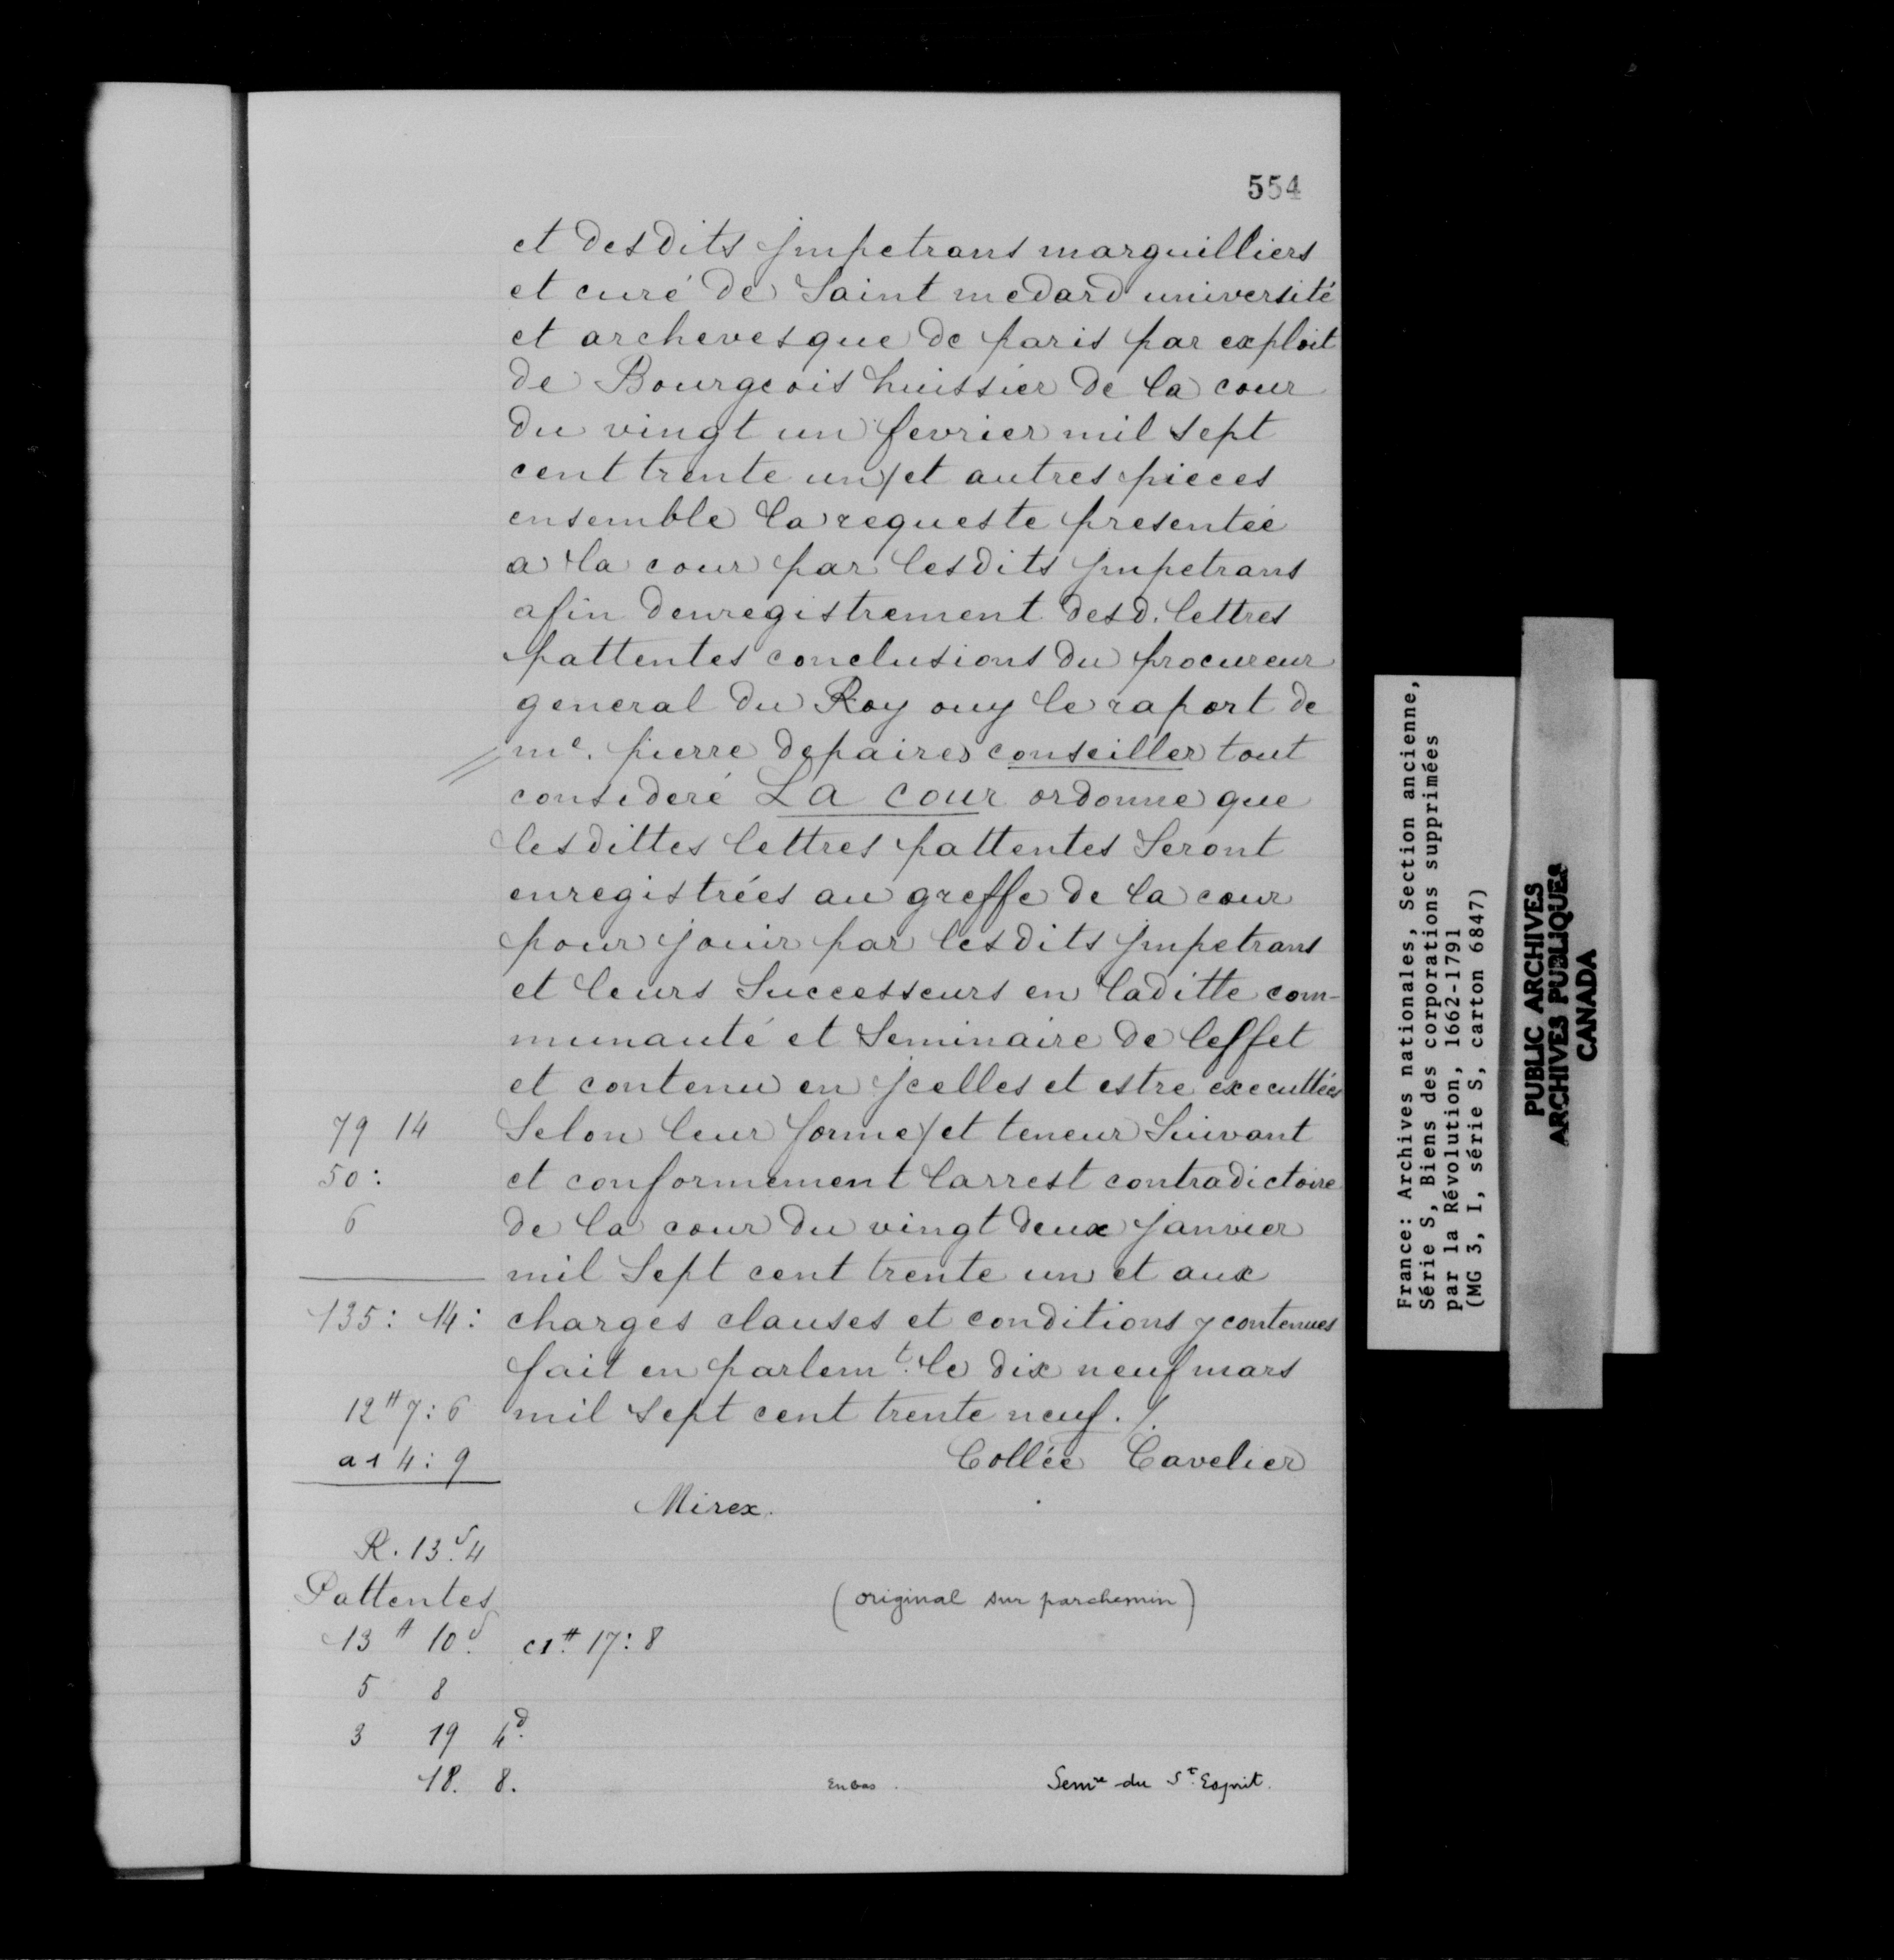 554
et desdits jmpetrans marguilliers
et curé de Saint medard université
et archevesque de paris par exploit
de Bourgeois huissier de la cour
du vingt un fevrier mil sept
cent trente un et autres pieces
ensemble la requeste presentée
a la cour par lesdits jmpetrans
afin denregistrement desd. lettres
pattentes conclusions du procureur
general du Roy ouy le raport de
me. pierre depaires conseiller tout
consideré La cour ordonne que
lesdittes lettres pattentes Seront
enregistrées au greffe de la cour
pour jouir par lesdits jmpetrans
et leurs Successeurs en laditte com-
munauté et Seminaire de leffet
et contenu en jcelles et estre executtées
79 14 Selon leur forme et teneur Suivant
50: et conformement larrest contradictoire
6 de la cour du vingt deux janvier
mil Sept cent trente un et aux
135: 14: charges clauses et conditions y contenues
fait en parlemt. le dix neuf mars
12# 7: 6 mil sept cent trente neuf. /.
a 1 4: 9 Collée Cavelier
Mirex.
R. 13s. 4
Pattentes (original sur parchemin)
13# 10s. c1# 17: 8
5 8
3 19 4d.
18. 8. En bas. Semre du St. Esprit.
France: Archives nationales, Section ancienne,
Série S, Biens des corporations supprimées
par la Révolution, 1662-1791
(MG 3, I, série S, carton 6847)
PUBLIC ARCHIVES
ARCHIVES PUBLIQUES
CANADA